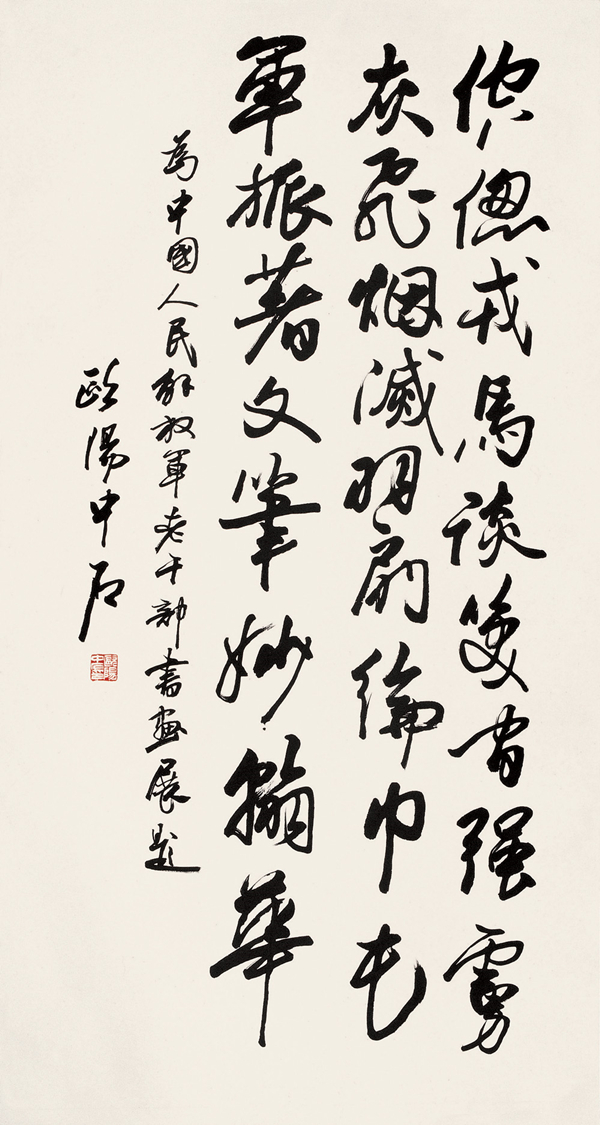 倥傯戎馬談笑間强虜
灰飛烟滅羽扇綸巾屯
軍振著文筆妙翰華
為中國人民解放軍老干部書畫展題
歐陽中石